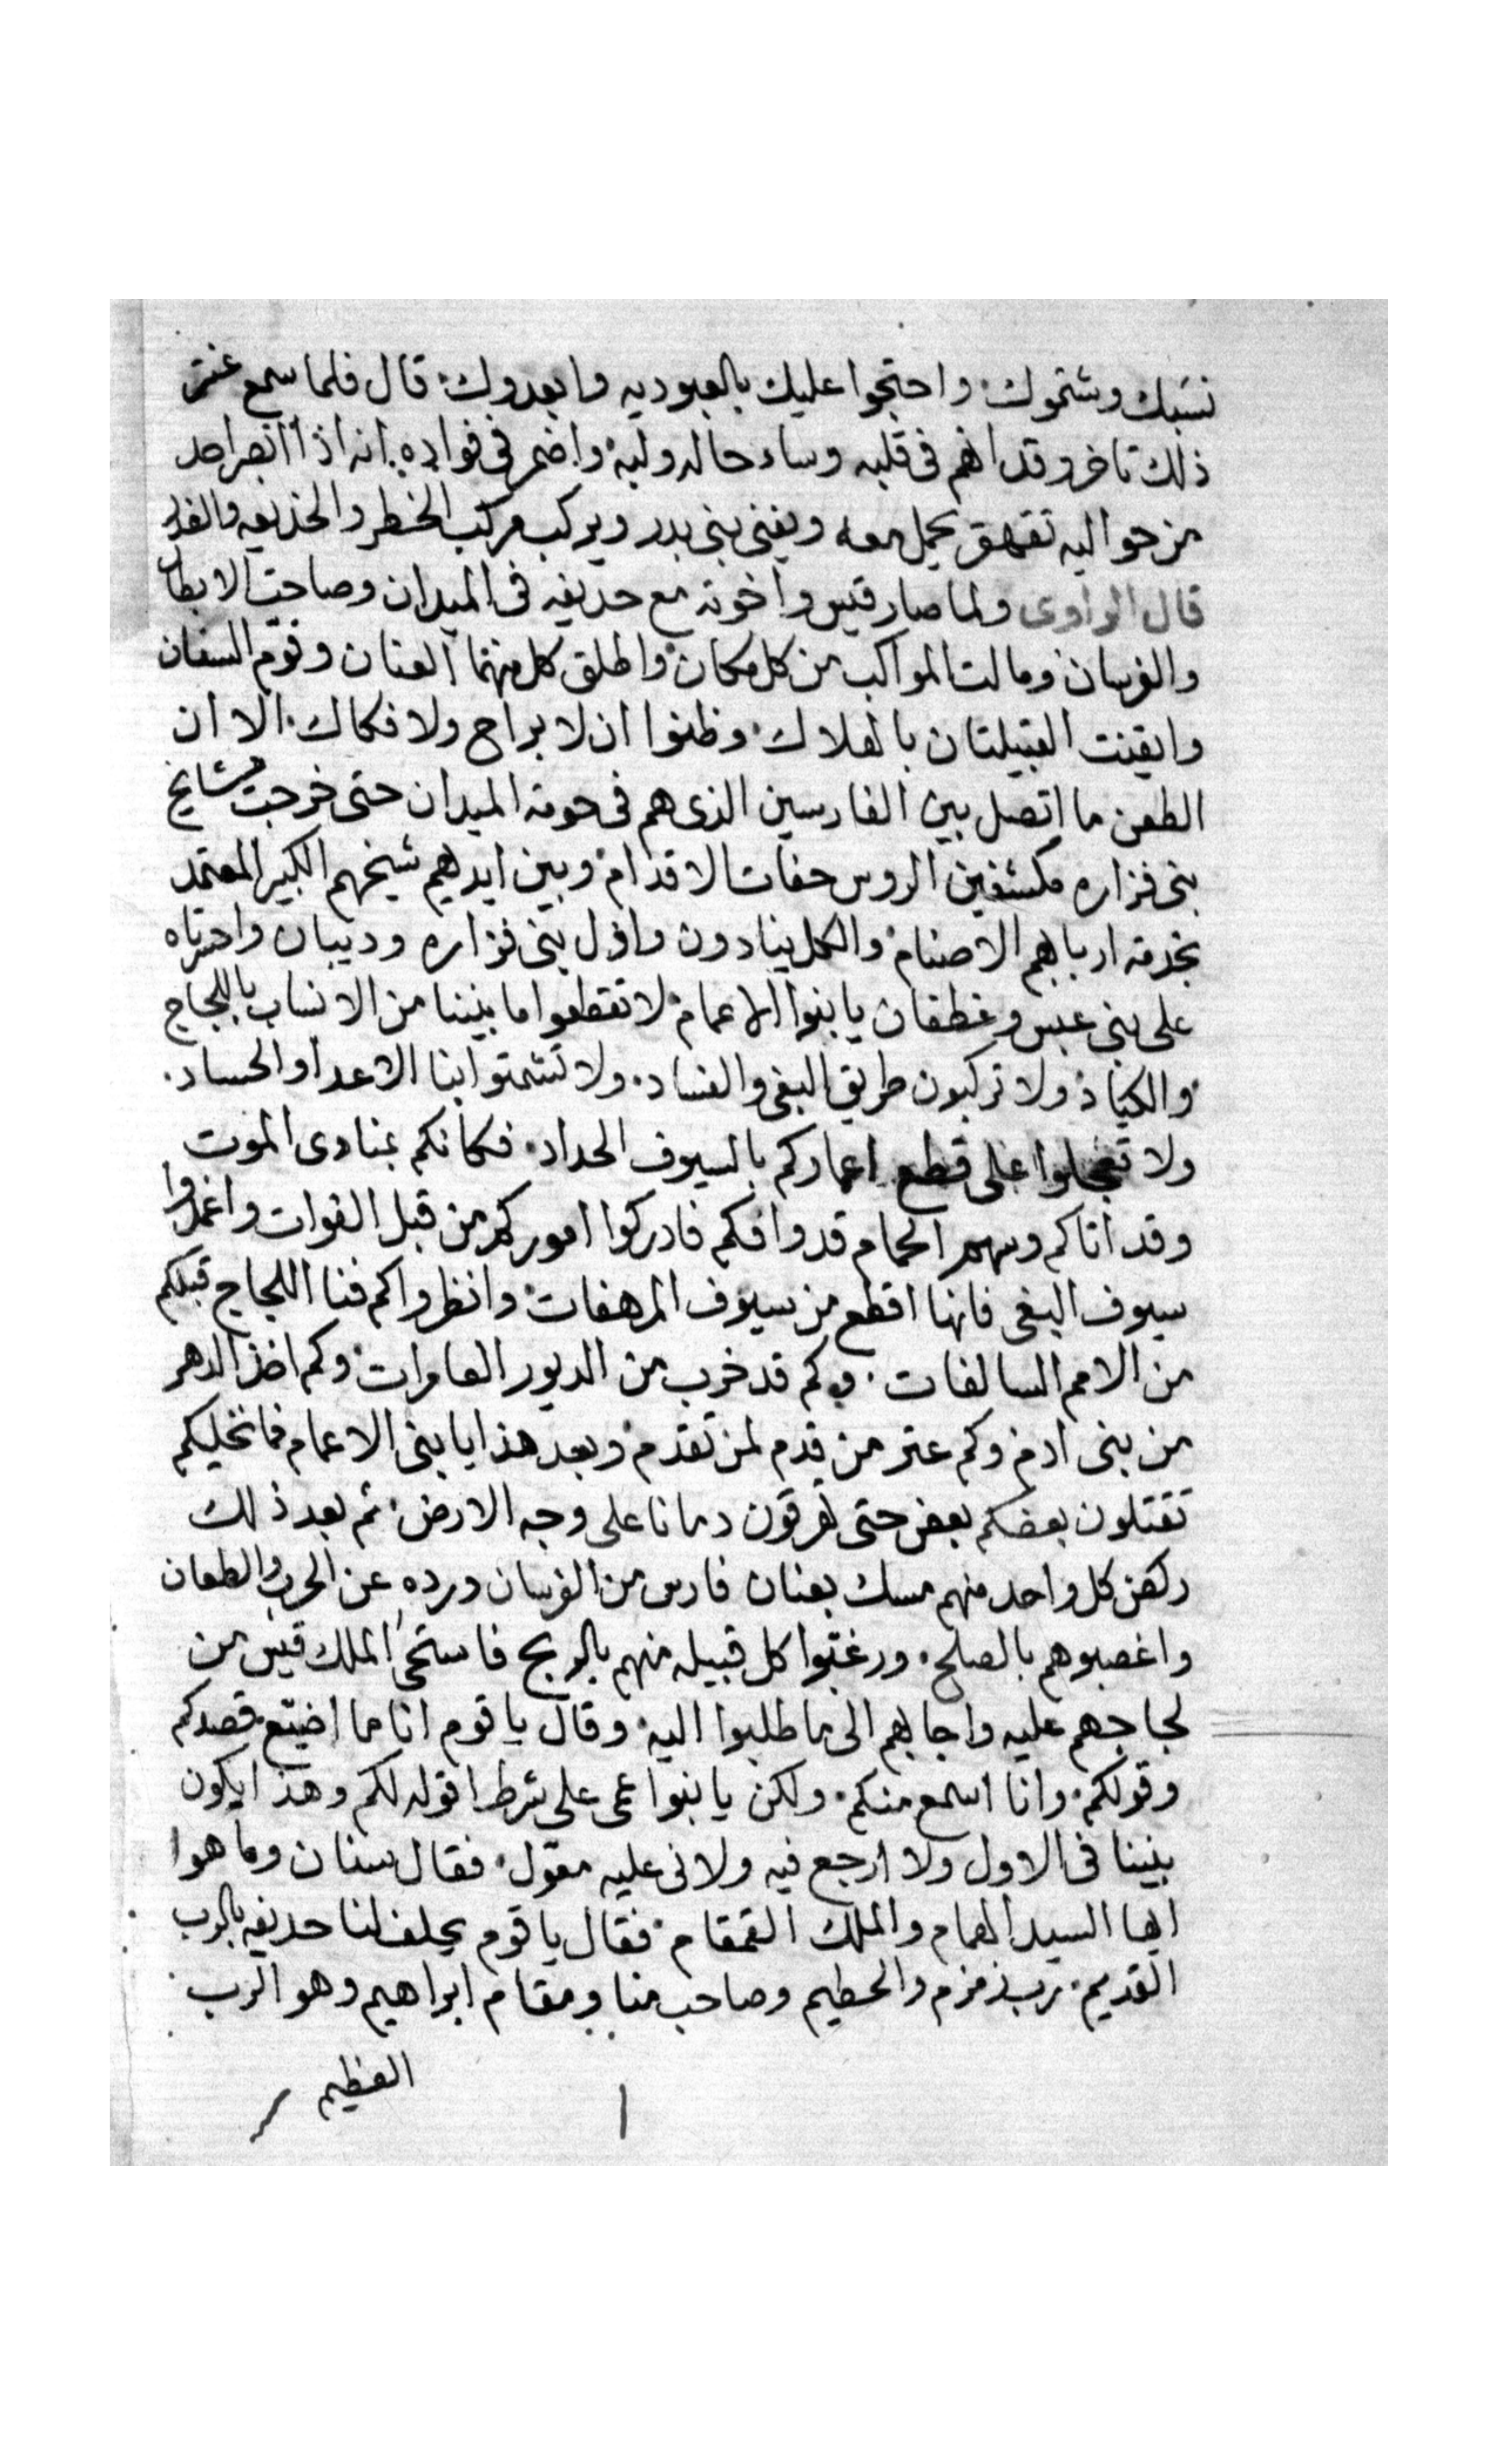 نسبك وشتموك واحتجوا عليك بالعبوديه وابعدوك قال فلما سمع عنتر
ذلك تاخر وقد اهم فى قلبه وساء حاله ولبه واضمر فى فواده انه اذا ابصر احد
من حواليه تقهقر يحمل معه ويفنى بنى بدر ويركب مركب الخطر والخديعه والغدر
قال الراوى ولما صار قيس واخوته مع حديفه فى الميدان وصاحت الابطال
والفرسان ومالت المواكب من كل مكان واطلق كل منهما العنان وقوم السنان
وايقنت القبيلتان بالهلاك وظنوا ان لا براح ولا فكاك الا ان
الطعن ما اتصل بين الفارسين الذى هم فى حومة الميدان حتى خرجت مشايخ
بنى فزاره مكشفين الروس حفات الاقدام وبين ايديهم شيخهم الكبير المعتمد
بخدمة اربابهم الاصنام والكل ينادون واذل بنى فزاره ودبيان واحرتاه
على بنى عبس وغطفان يا بنوا الاعمام لا تقطعوا ما بيننا من الانساب باللجاج
والكياد ولا تركبون طريق البغى والفساد ولا تشمتوا بنا الاعدا والحساد
ولا تعجلوا على قطع اعماركم بالسيوف الحداد فكانكم بمنادى الموت
وقد اتاكم وسهم الحمام قد وافكم فادركوا اموركم من قبل الفوات واغمدوا
سيوف البغى فانها اقطع من سيوف المرهفات وانظروا كم فنا اللجاج قبلكم
من الامم السالفات وكم قد خرب من الديور العامرات وكم اخذ الدهر
من بنى ادم وكم عثر من قدم لمن تقدم وبعد هذا يا بنى الاعمام فما نخليكم
تقتلون بعضكم بعض حتى تفرقون دمانا على وجه الارض ثم بعد ذلك
ركض كل واحد منهم مسك بعنان فارس من الفرسان ورده عن الحرب والطعان
واغصبوهم بالصلح ورغبوا كل قبيله منهم بالربح فاستحى الملك قيس من
لجاجهم عليه واجابهم الى ما طلبوا اليه وقال يا قوم انا ما اضيع قصدكم
وقولكم وانا اسمع منكم ولكن يا بنوا عمى على شرط اقوله لكم وهذا يكون
بيننا فى الاول ولا ارجع فيه ولا نى عليه معول فقال سنان وما هوا
ايها السيد الهمام والملك القمقام فقال يا قوم يحلف لنا حديفه بالرب
القديم رب زمزم والحطيم وصاحب منا ومقام ابراهيم وهو الرب
العظيم